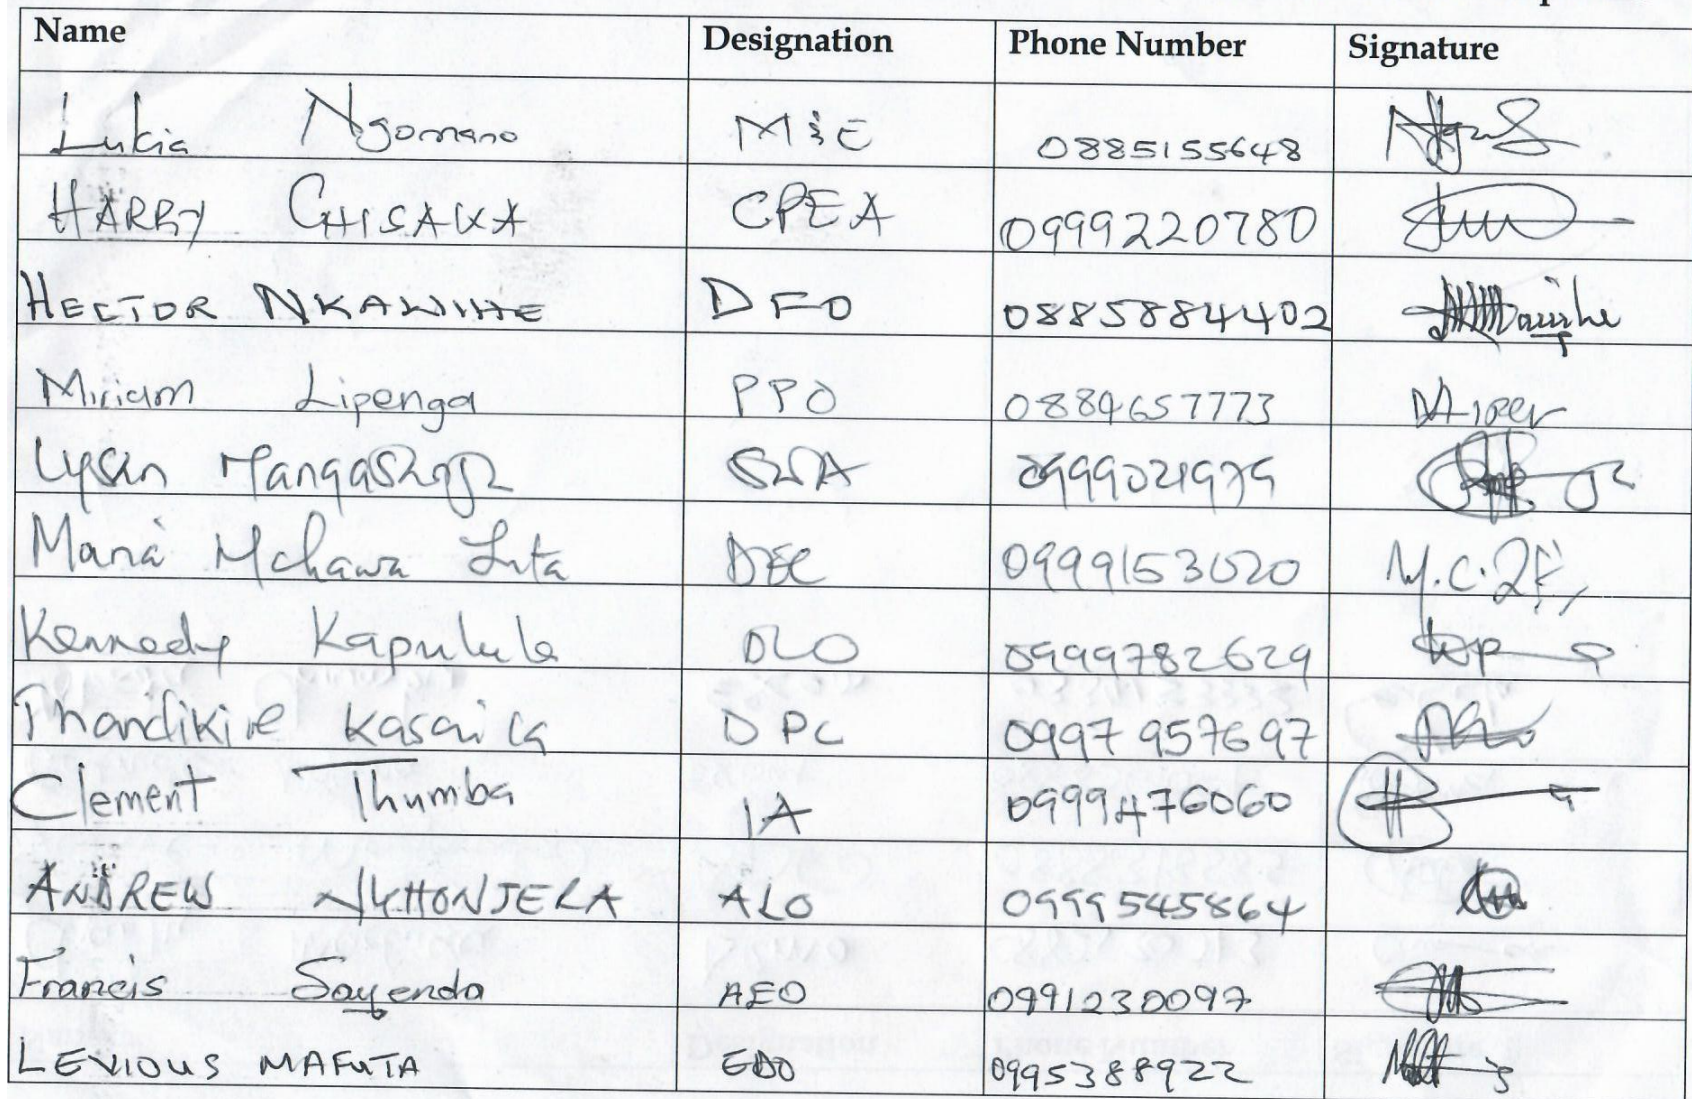 Name Designation Phone Number Signature
Lukia Ngomano M&E 0885155648
HARRY CHISAKA CPEA 0999220780
HECTOR NKAWIHE DFO 0885884402
Miriam Lipenga PPO 0884657773
Lyson 0999021979
Maria Mchawa Lita DEC 0999153020
Kennedy Kapulula DLO 0999782629
Thandikire Kasaika DPC 0997 957697
Clement Thumba IA 0999476060
ANDREW NKHONJERA ALO 0999545864
Francis Sayenda AEO 0991230097
LEVIOUS MAFUTA EDO 0995388922